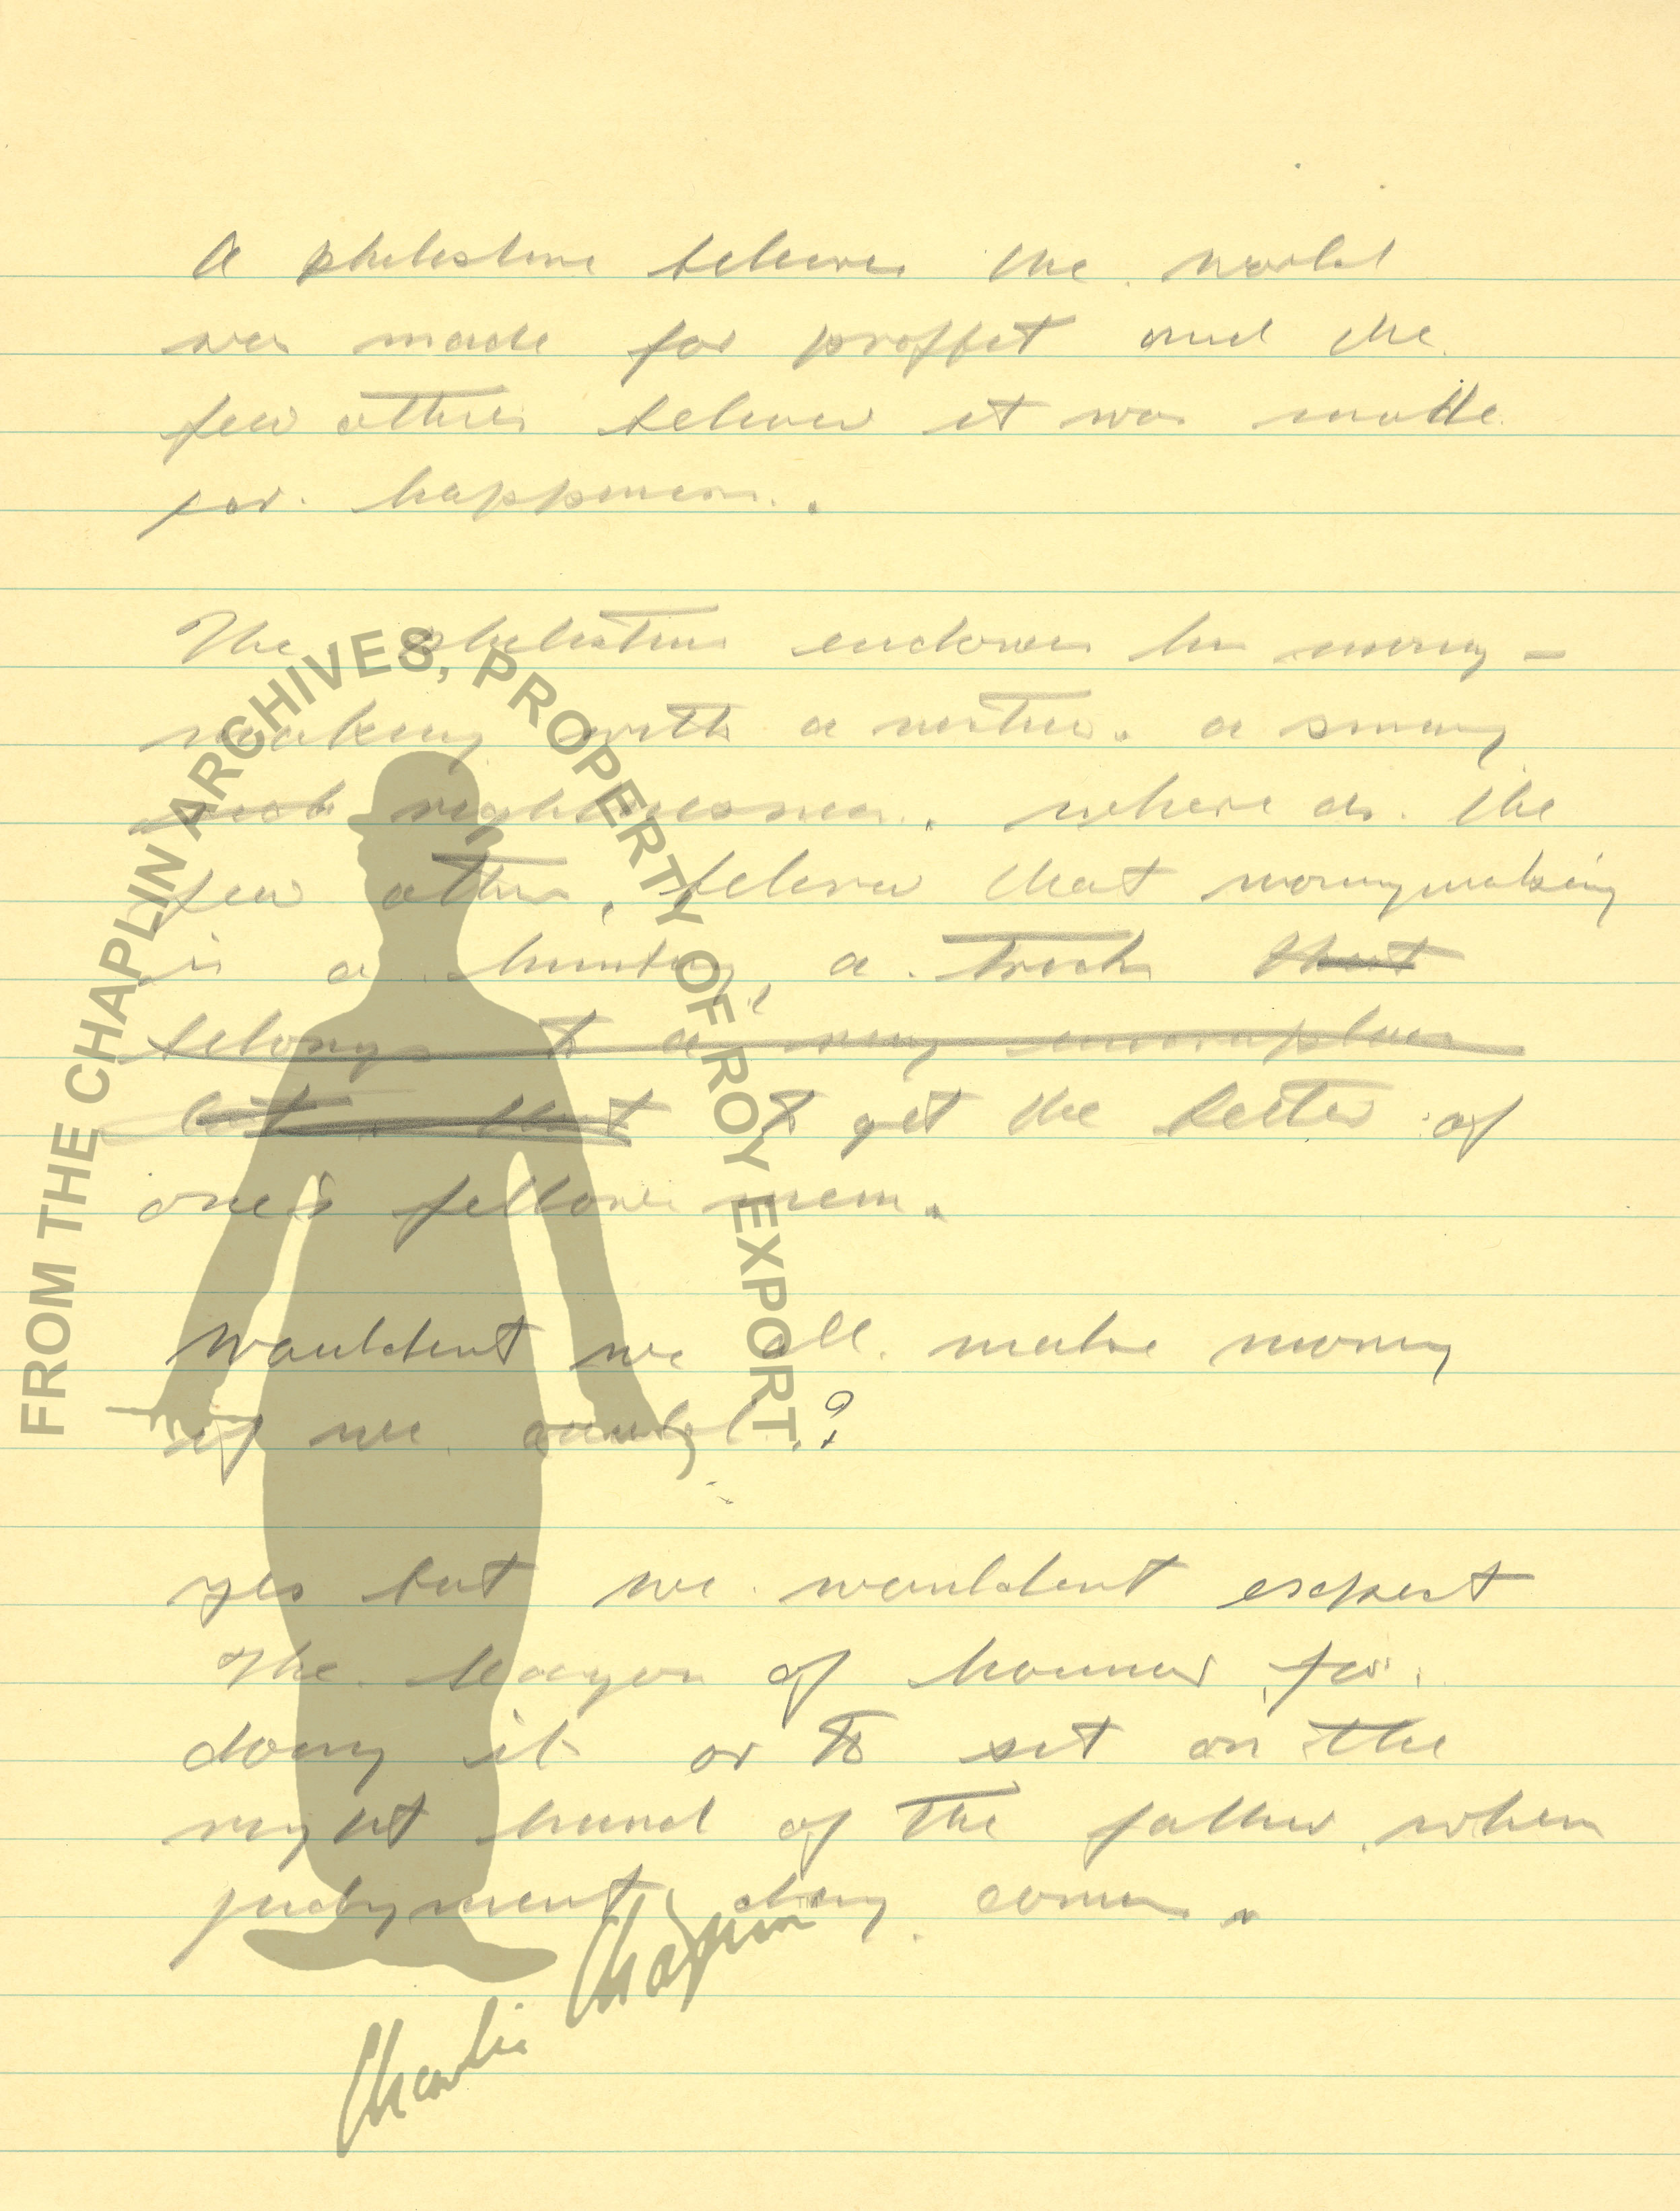 A philistine believes the world
was made for proffet and the
few others believe it was made
for happiness.
The philistine endows his money-
making with a virtue. a smug
righteousness. where as the
few others, believe that moneymaking
is a a trick that
belongs to a very
but that to get the better of
one's fellow men.
Wouldent we all make money
if we could?
yes but we wouldent expect
the of honner for
doing it or to sit on the
right hand of the father when
judgment day comes.
FROM THE CHAPLIN ARCHIVES, PROPERTY OF ROY EXPORT
Charlie Chaplin